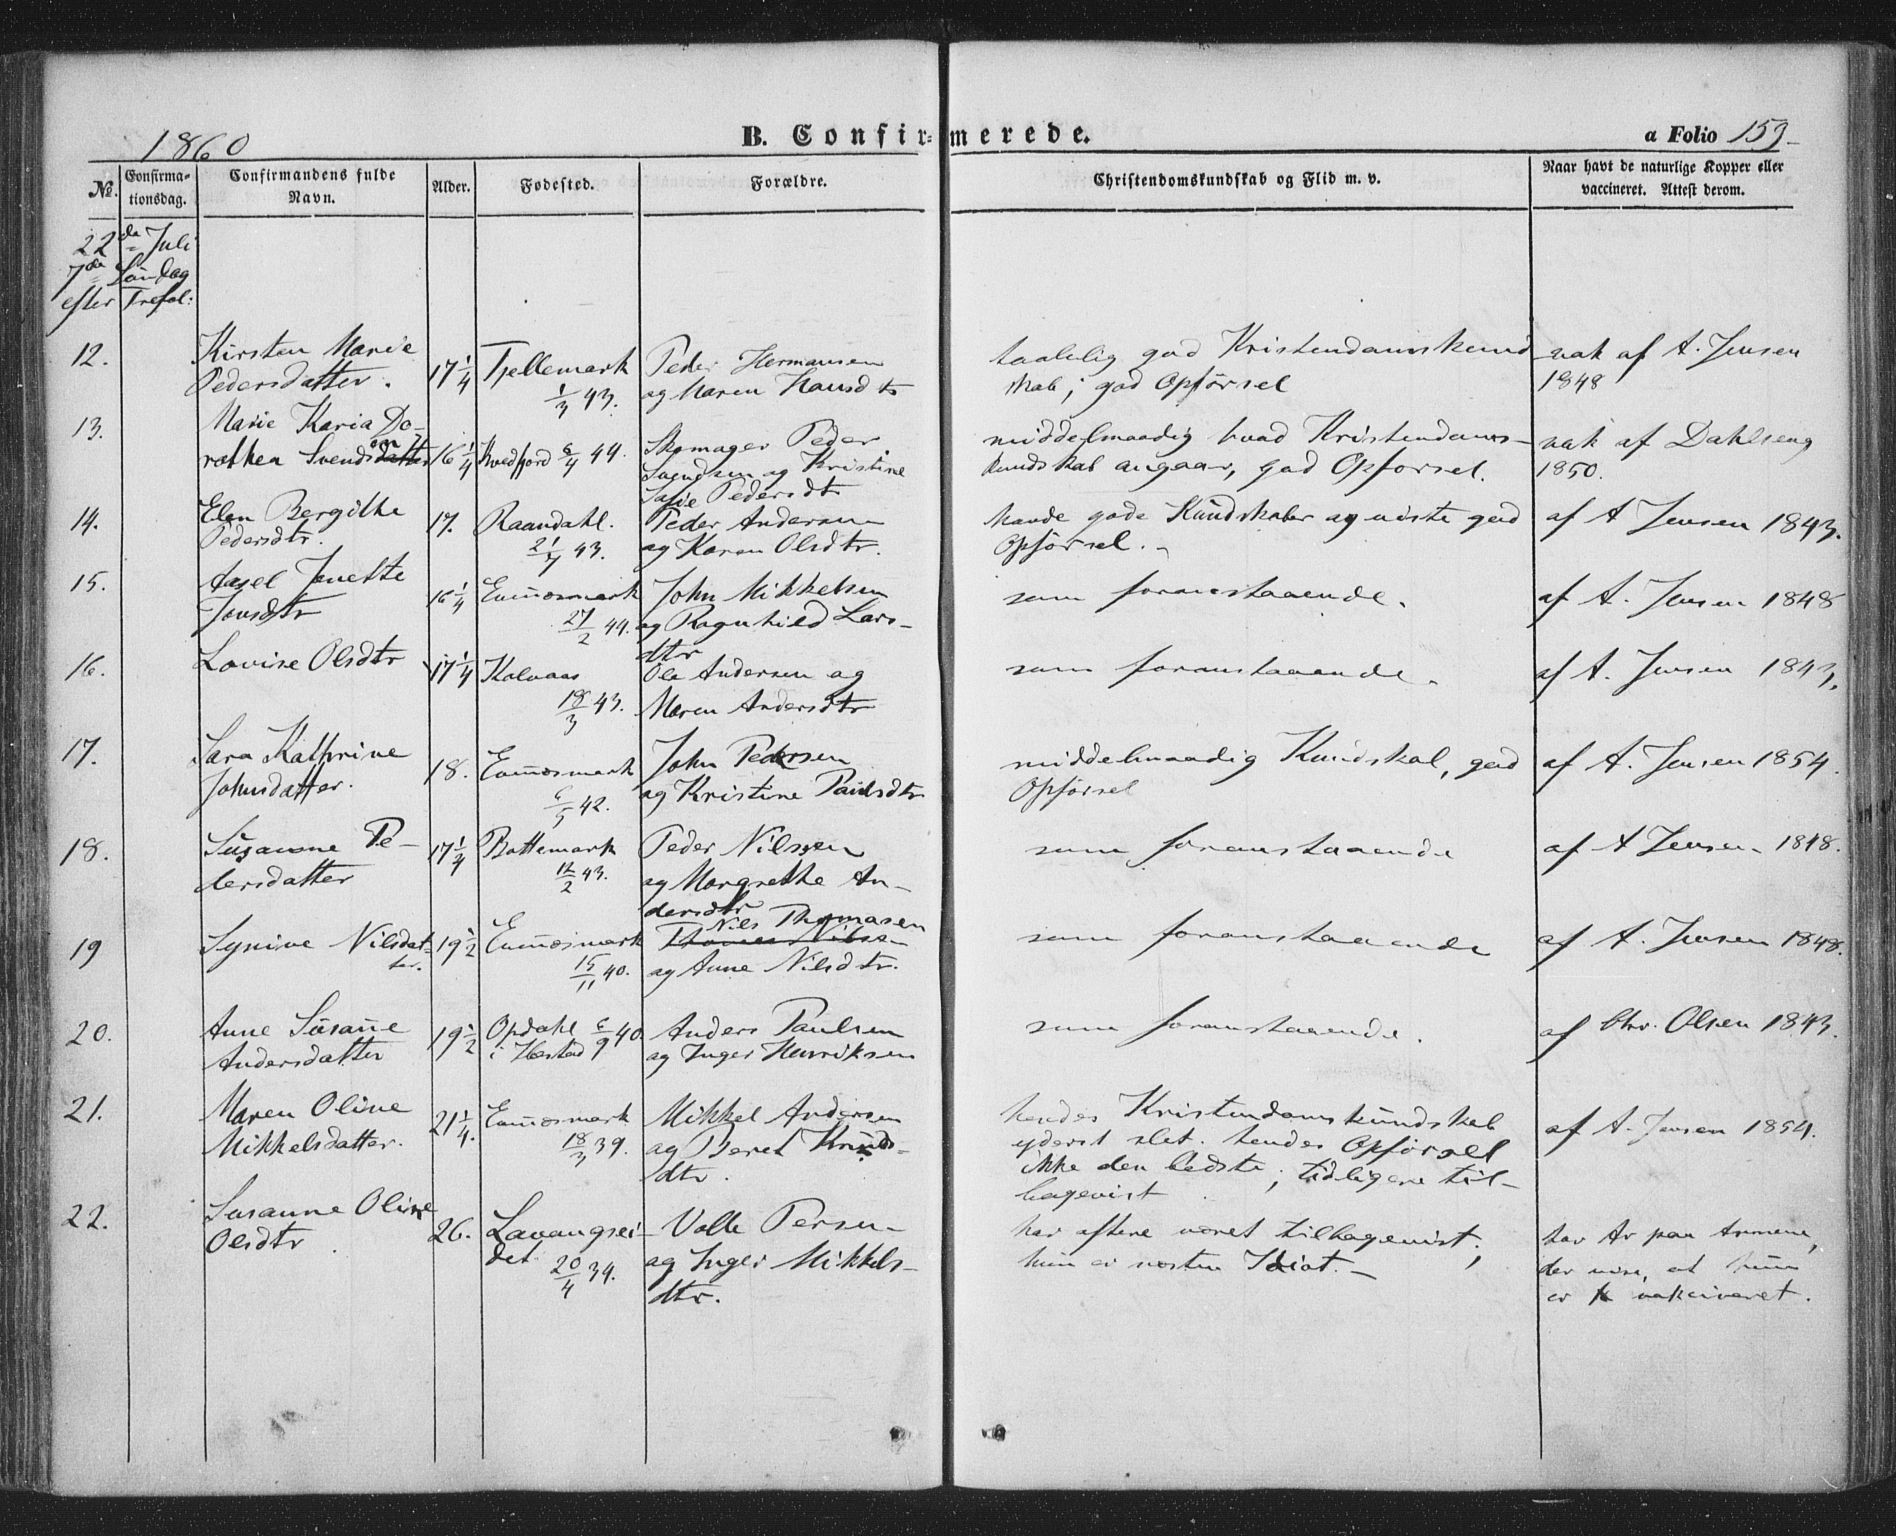 1860 B. Confirmerede. a Folio 159
No. Confirmationsdag. Confirmandens fulde Navn. Alder. Fødested. Forældre. Christendomskundskab og Flid m. v. Naar havt de naturlige Kopper eller vaccineret. Attest derom.
22da Juli
7de Søndag
efter Trefol:
12. Kirsten Marie 17 1/4 Tjellemark Peder Hermansen taalelig god Kristendomskund vak af A. Jensen
Pedersdatter. 1/3 43. og Maren Hansdtr skab; god Opførsel 1848
13. Marie Karia Do-
rothea Svendsdatter 16 1/4 Kvedfjord 6/4 44. Skomager Peder middelmaadig hvad Kristendoms- vak af Dahlseng
Svendsen og Kristine kundskab angaar, god Opførsel. 1850.
Pedersdtr
14. Elen Bergithe 17. Raandahl. Peder Andersen havde gode Kundskaber og viste god af A Jensen 1843.
Pedersdtr. 21/7 43. og Karen Olsdtr. Opførsel.
15. Jenette 16 1/4 John Mikkelsen som foranstaaende. af A. Jensen 1848
Jonsdtr 27/2 44. og Ragnhild Lars-
dtr
16. Lovise Olsdtr 17 1/4 Kolvaas Ole Andersen og som foranstaaende. af A. Jensen 1843.
18/3 43. Maren Andersdtr
17. Sara Kathrine 18. John Pedersen middelmaadig Kundskab, god af A. Jensen 1854.
Johnsdatter. 6/5 42. og Kristine Paulsdtr Opførsel
18. Susanne Pe- 17 1/4 Bottemark Peder Nilssen som foranstaaende af A Jensen 1848.
dersdatter 12/2 43. og Margrethe An-
dersdtr
19 Synive Nilsdat- 19 1/2 Nils Thomasen som foranstaaende af A. Jensen 1848.
ter. 15/11 40. Thomas Nilsen
og Anne Nilsdtr.
20. Anne Susanne 19 1/2 Opdahl 6/9 40 Anders Paulsen som foranstaaende. af Chr. Olsen 1843.
Andersdatter i Ibestad og Inger Henriksen
21. Maren Oline 21 1/4. Mikkel Andersen hendes Kristendomskundskab af A. Jensen 1854.
Mikkelsdatter. 18/3 39. og Beret Knuds- yderst slet. hendes Opførsel
dtr. ikke den bedste; tidligere til-
bagevist
22. Susanne Oline 26. Lavangsei- Volle Persen har oftere været tilbagevist; har Ar paa Armene,
Olsdtr det 20/4 34. og Inger Mikkels- hun er næsten Idiot. der vise, at hun
dtr. er vakcineret.